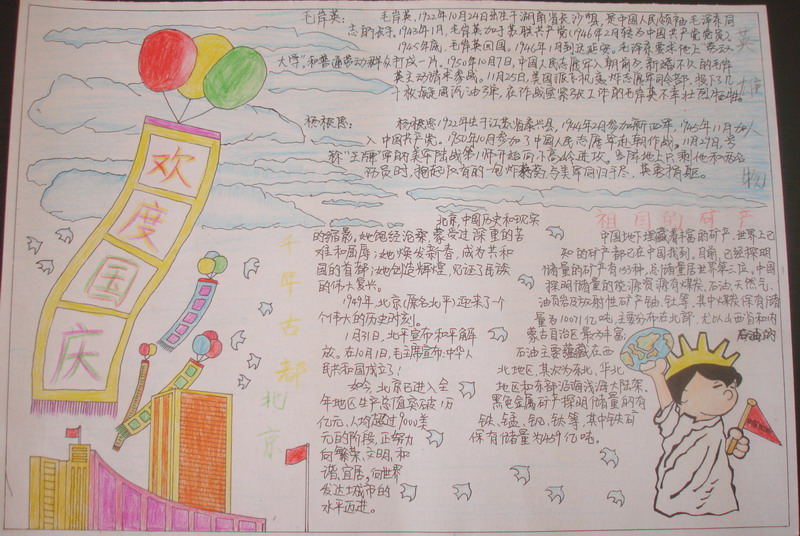 毛岸英: 毛岸英,1922年10月24日出生于湖南省长沙县,是中国人民领袖毛泽东同
志的长子,1943年1月,毛岸英加于苏联共产党(1946年2月转为中国共产党党员)
1945年底,毛岸英回国,1946年1月到达延安。毛泽东要求他上"劳动
大学",和普通劳动群众打成一片。1950年10月7日,中国人民志愿军入朝前夕,新婚不久的毛岸
英主动请求参战。11月25日,美国派飞机轰炸志愿军司令部,投下了几
十枚凝固汽油弹,在作战室紧张工作的毛岸英不幸壮烈牺牲。
英雄人物
杨根思: 杨根思1922年生于江苏省泰兴县,1944年2月参加新四军,1945年11月加
入中国共产党。1950年10月参加了中国人民志愿军赴朝作战。11月29日,号
称"王牌"军的美军陆战第1师开始向下碣岭进攻。当阵地上只剩他和两名
伤员时,抱起仅有的一包炸药与美军同归于尽,英勇捐躯。
欢度国庆
千年古都北京
北京,中国历史和现实
的缩影,她饱经沧桑,蒙受过深重的苦
难和屈辱;她焕发新春,成为共和
国的首都;她创造辉煌,见证了民族
的伟大复兴。
1949年,北京(原名北平)迎来了一个
个伟大的历史时刻。
1月31日,北平宣布和平解
放。在10月1日,毛主席宣布:中华人
民共和国成立了!
如今,北京已进入全
年地区生产总值突破1万
亿元,人均超过9000美
元的阶段,正努力
向繁荣、文明、和
谐、宜居,向世界
发达城市的
水平迈进。
祖国的矿产
中国地下埋藏着丰富的矿产,世界上已
知的矿产都已在中国找到,目前已经探明
储量的矿产有153种,总储量居世界第三位。中国
探明储量的能源资源有煤炭、石油、天然气、
油页岩及放射性矿产铀、钍等,其中煤炭保有储
量为10071亿吨,主要分布在北部,尤以山西省和内
蒙古自治区最为丰富。石油的
石油主要蕴藏在西
北地区,其次为东北、华北
地区和东部沿海浅海大陆架。
黑色金属矿产探明储量的有
铁、锰、钒、钛等,其中铁矿
保有储量为459亿吨。